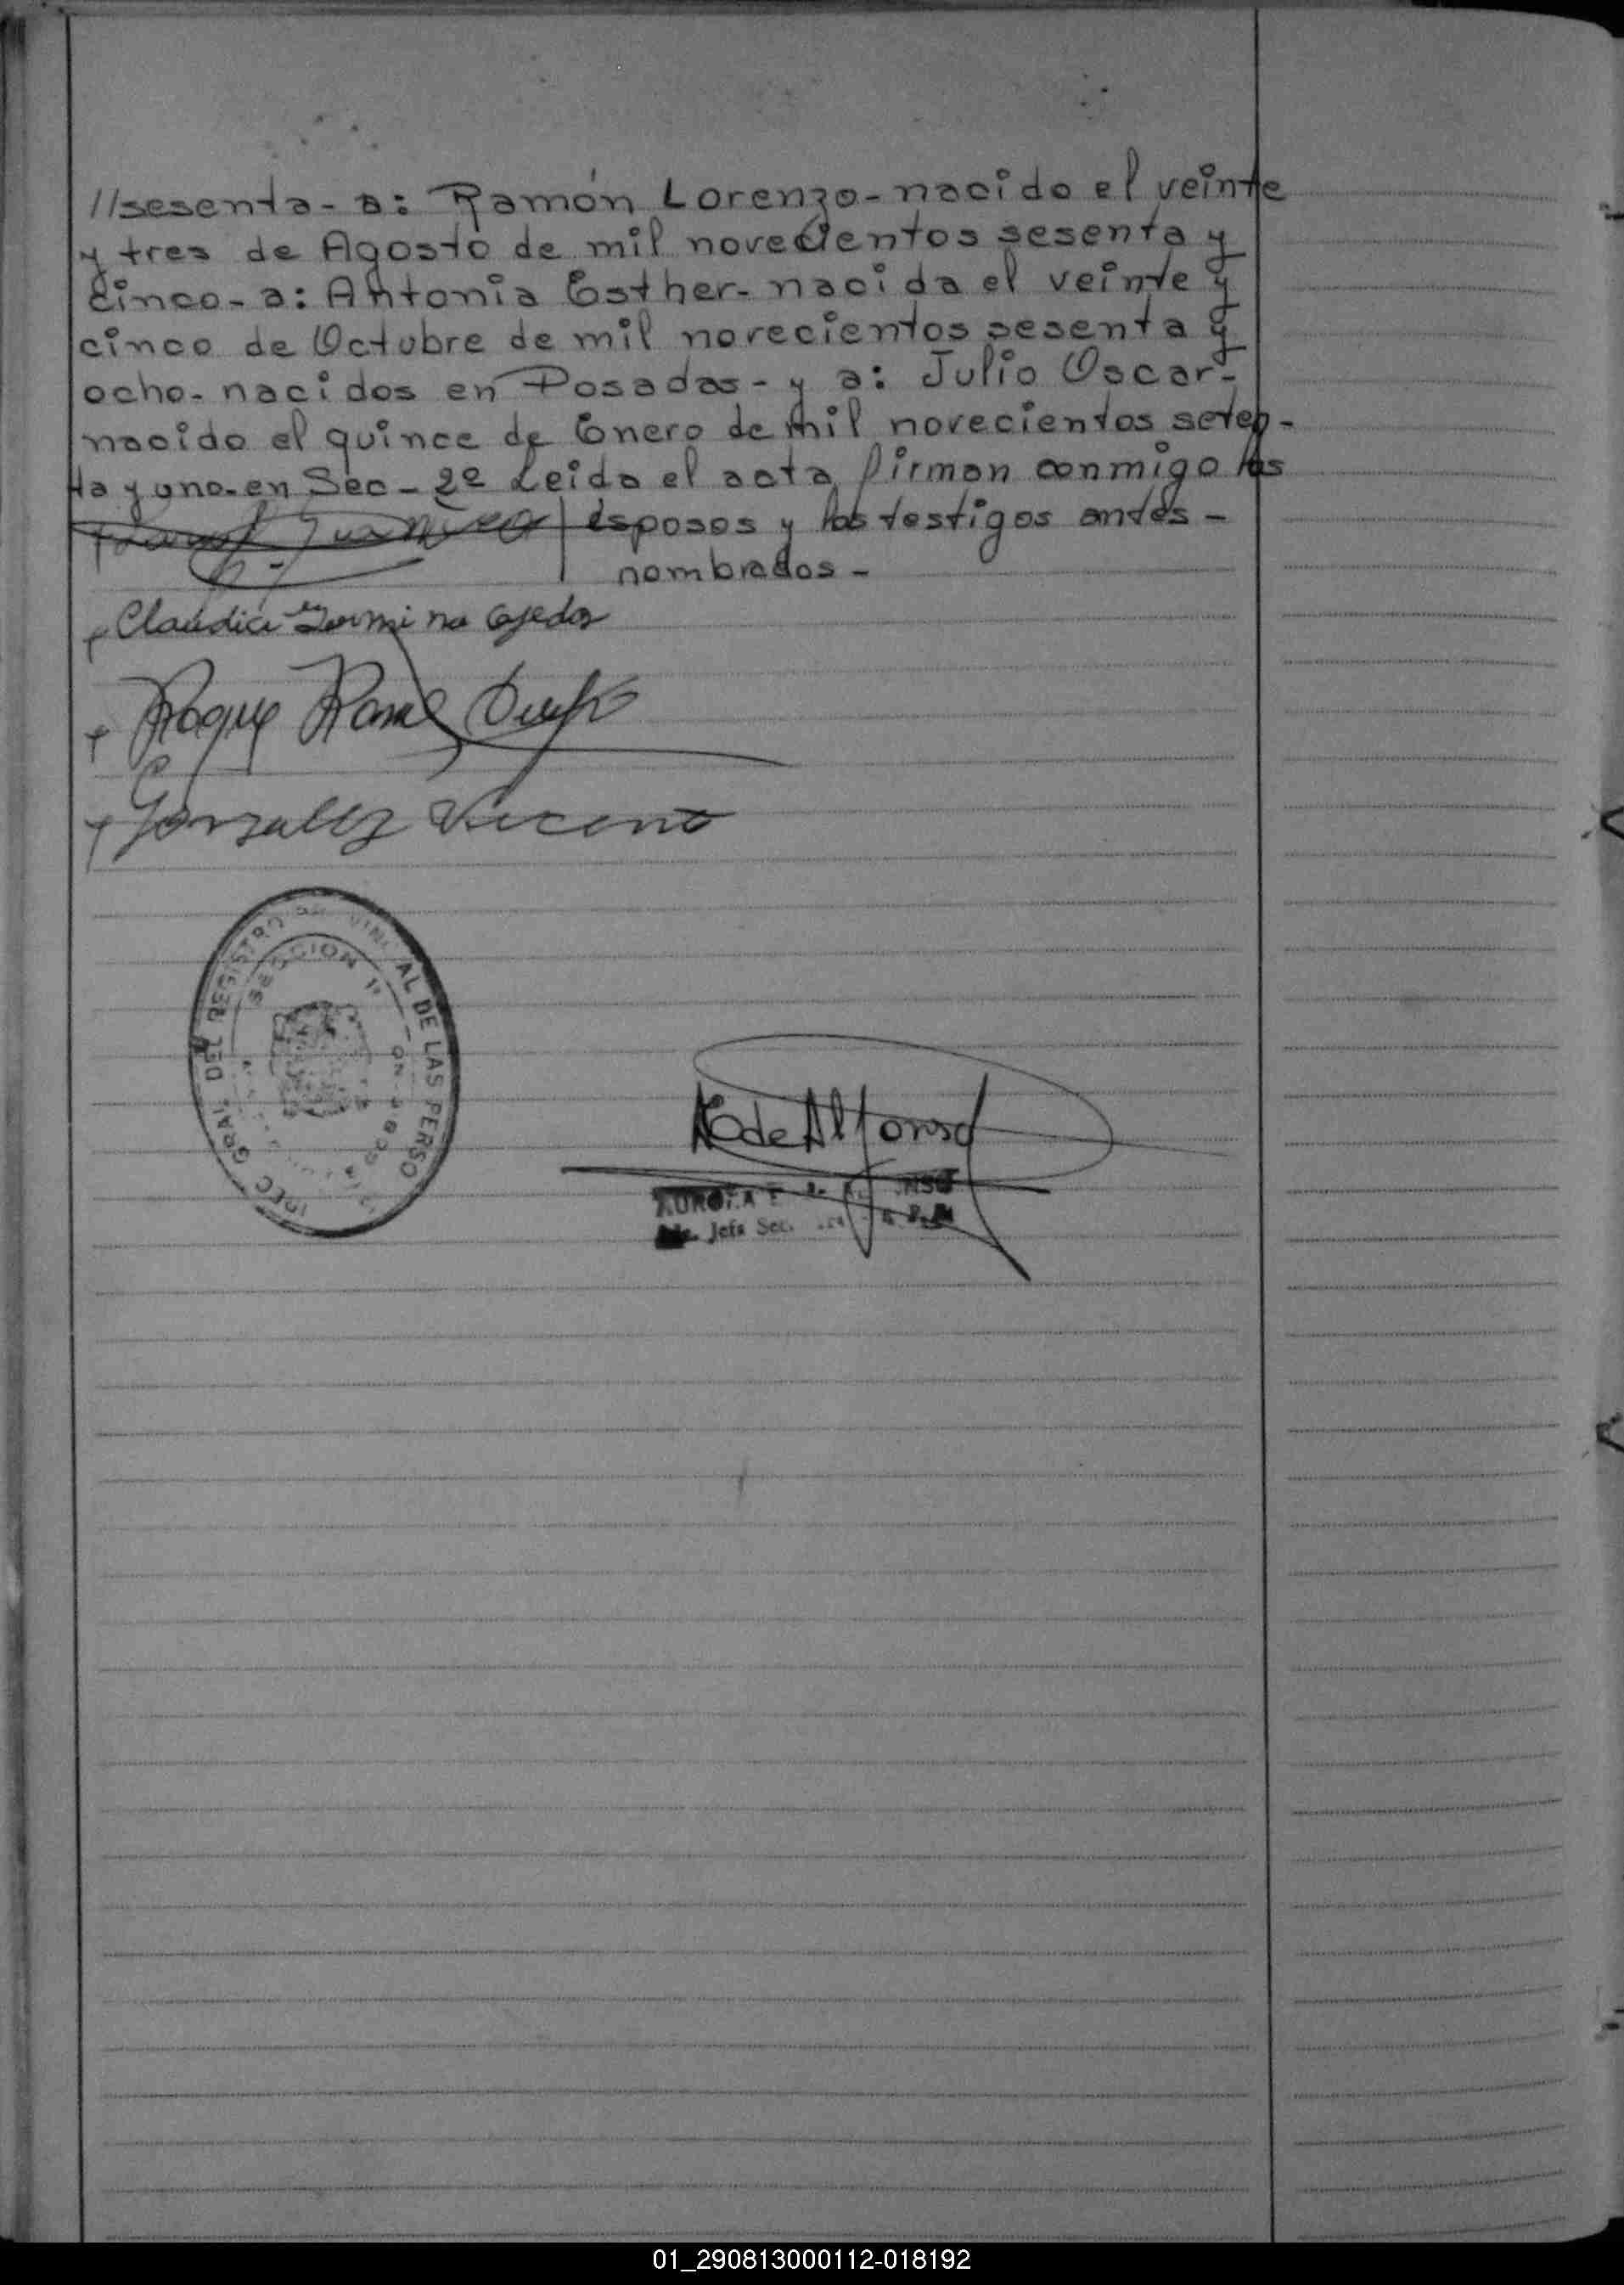 //sesenta - a: Ramón Lorenzo - nacido el veinte
y tres de Agosto de mil novecientos sesenta y
cinco - a: Antonia Esther - nacida el veinte y
cinco de Octubre de mil novecientos sesenta y
ocho - nacidos en Posadas - y a: Julio Oscar -
nacido el quince de Enero de mil novecientos seten-
ta y uno - en Sec - 2ª Leida el acta, firman conmigo los
esposos y los testigos antes -
nombrados -
Claudia Ojeda
Roque
Gonzalez Vicente
DEL REGISTRO PROVINCIAL DE LAS PERSO
SECCION 1ª
GRAL
A E de Alfonso
AURORA E
Jefa Sec.
01_290813000112-018192